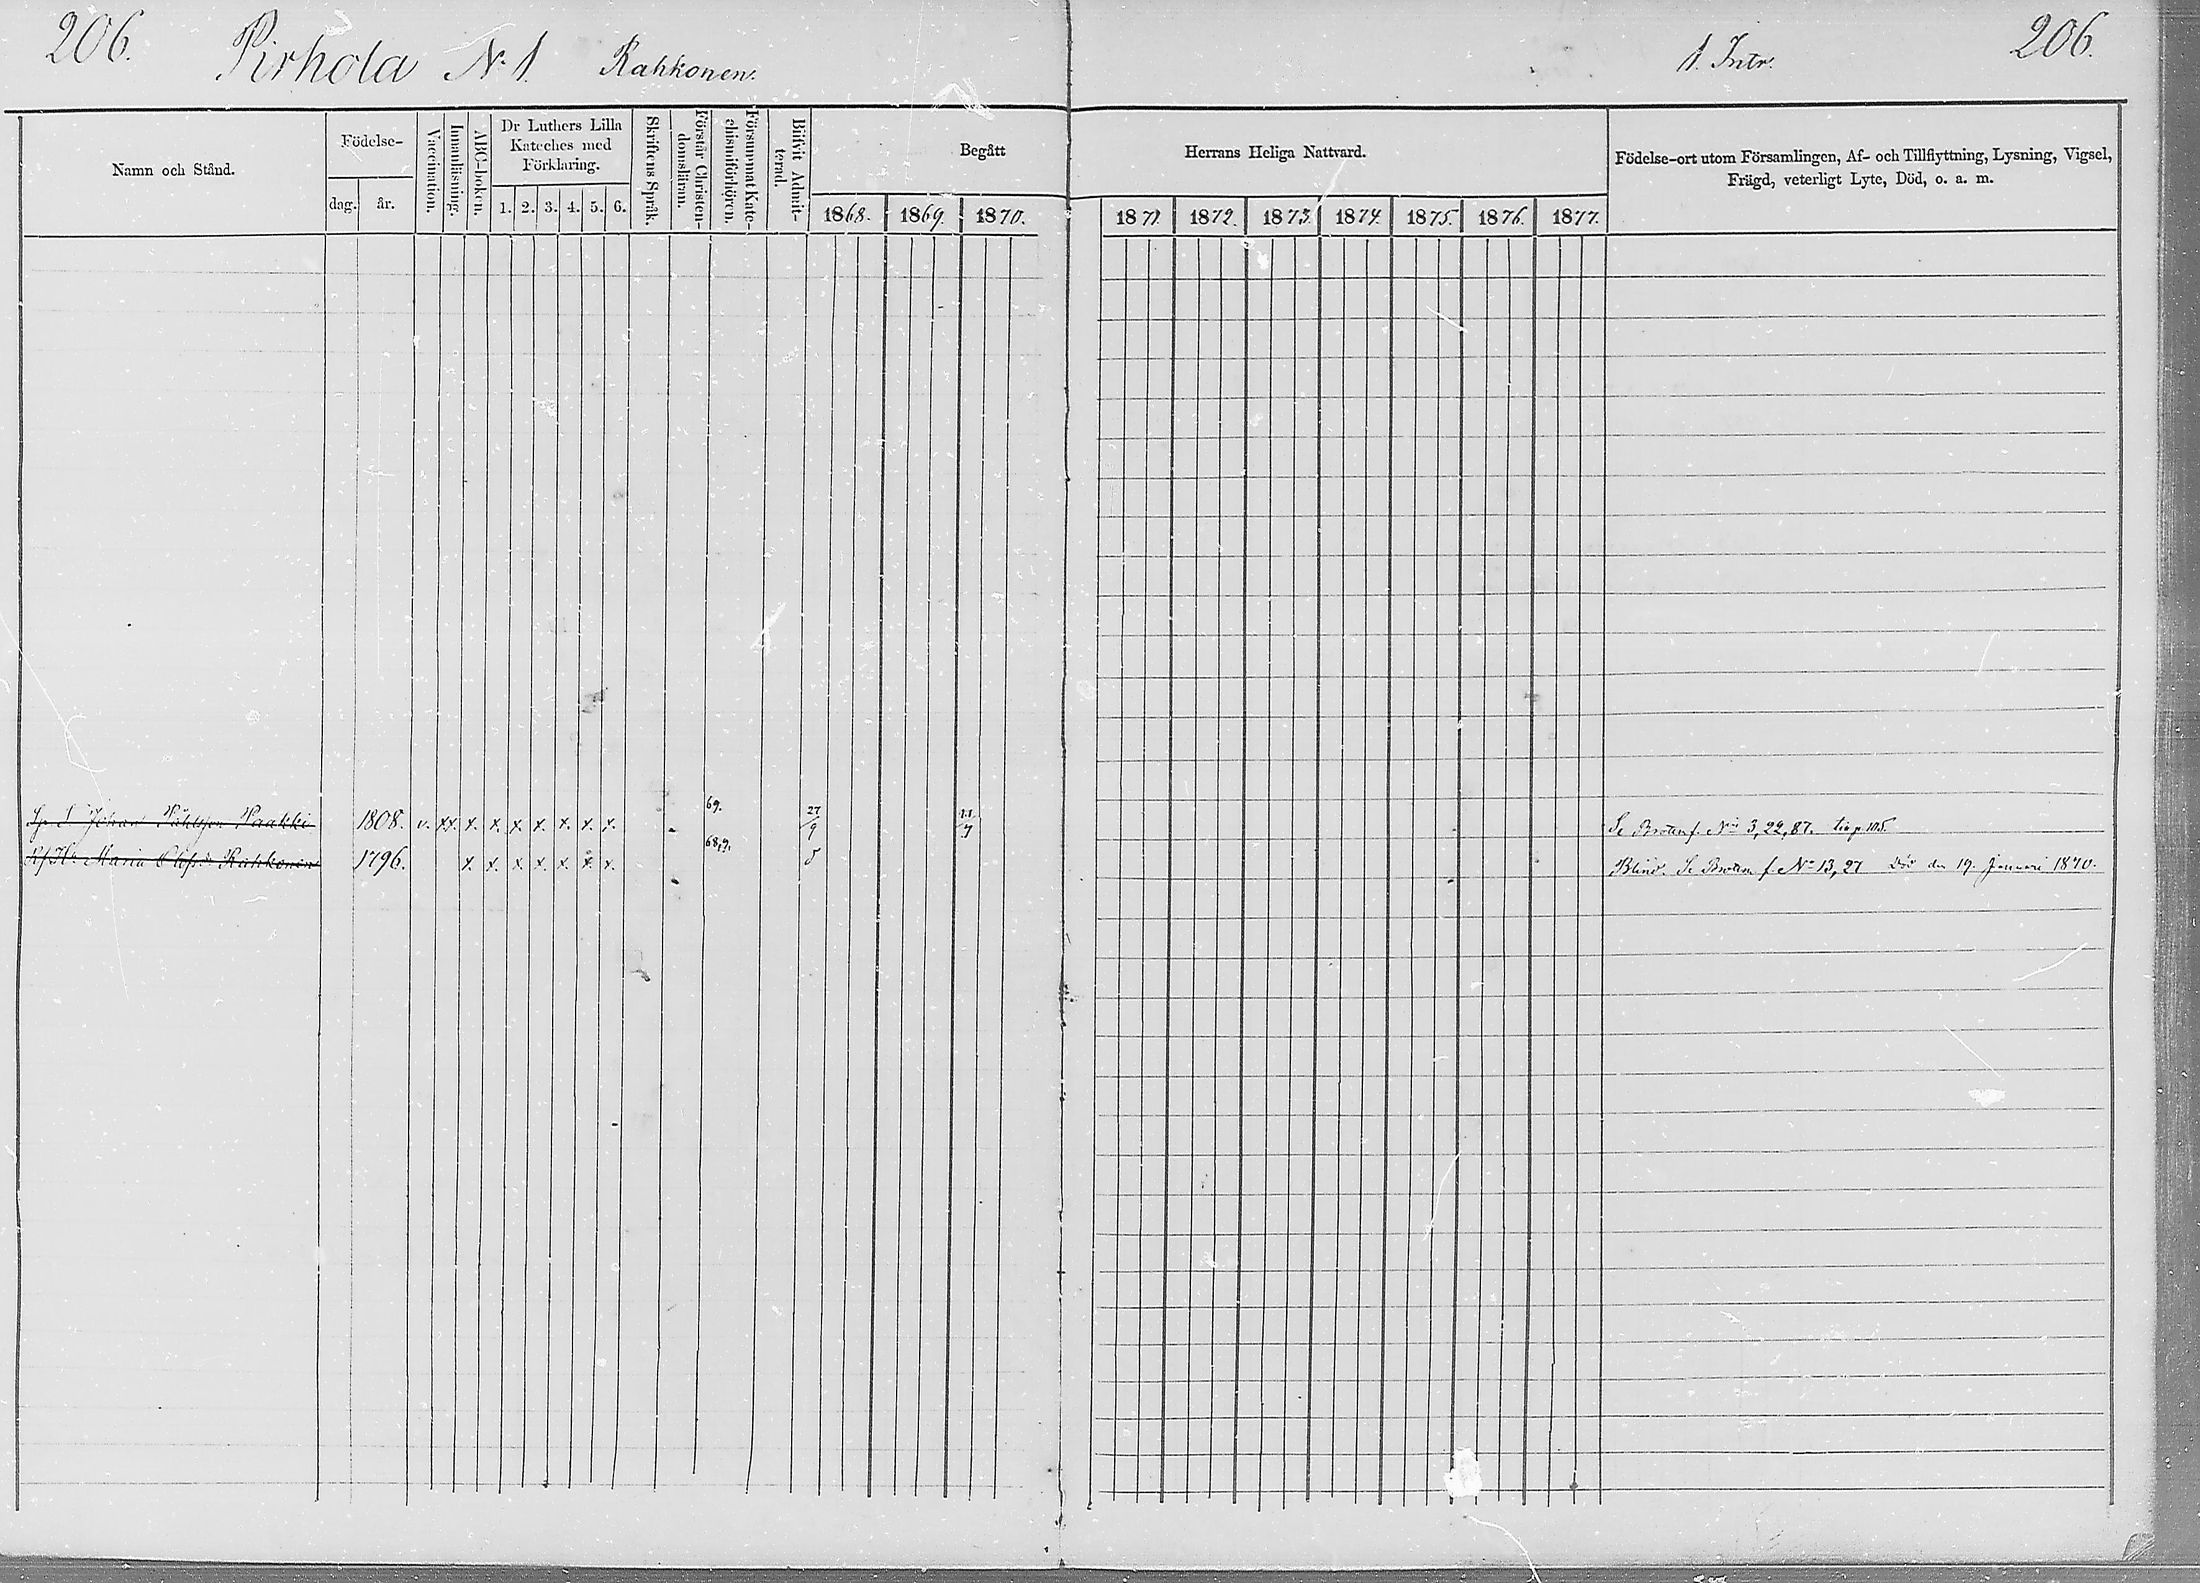 206. Pirhola No 1. Rahkonen. 1. Intr. 206.
Namn och Stånd.
Födelse-
dag. år.
Vaccination.
Innanläsning.
ABC-boken.
Dr Luthers Lilla
Kateches med
Förklaring.
1. 2. 3. 4. 5. 6.
Skriftens Språk.
Förstår Christen-
domsläran.
Försummat Kate-
chismiförhören.
Blifvit Admit-
terad.
Begått Herrans Heliga Nattvard.
1868. 1869. 1870. 1871. 1872. 1873. 1874. 1875. 1876. 1877.
Födelse-ort utom Församlingen, Af- och Tillflyttning, Lysning, Vigsel,
Frägd, veterligt Lyte, Död, o. a. m.
Johan Paakki 1808. v. xx. x. x. x. x. x. x. x. 69. 27/9 Se Brottm f. No 3, 22, 87. p. 105.
Maria Olofsdr Rahkonen 1796. x. x. x. x. x. x. x. 68, 9. Blind. Se Brottm f. No 13, 27 Död den 19 Januari 1870.